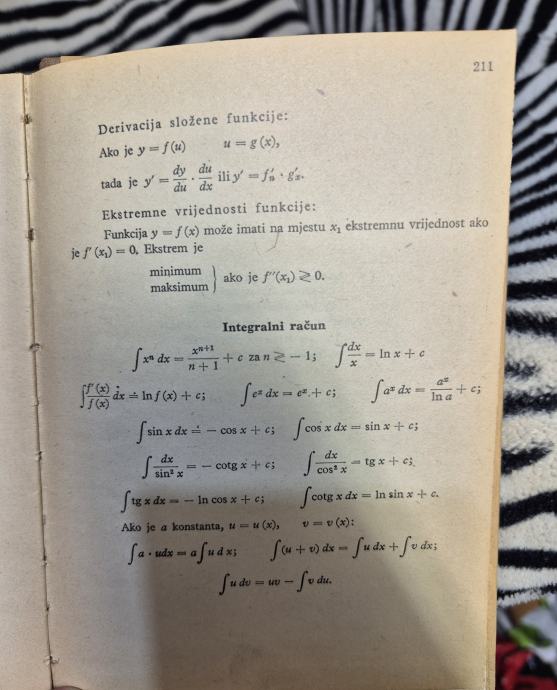 211
Derivacija složene funkcije:
Ako je y = f(u) u = g (x),
tada je y′ = dy/du · du/dx ili y′ = f′ᵤ · g′ₓ.
Ekstremne vrijednosti funkcije:
Funkcija y = f (x) može imati na mjestu x₁ ekstremnu vrijednost ako
je f′ (x₁) = 0. Ekstrem je
minimum
maksimum } ako je f″(x₁) ≷ 0.
Integralni račun
∫xⁿ dx = xⁿ⁺¹/(n + 1) + c za n ≷ − 1; ∫dx/x = ln x + c
∫f′(x)/f(x) dx = ln f (x) + c; ∫eˣ dx = eˣ + c; ∫aˣ dx = aˣ/ln a + c;
∫sin x dx = − cos x + c; ∫cos x dx = sin x + c;
∫dx/sin² x = − cotg x + c; ∫dx/cos² x = tg x + c;
∫tg x dx = − ln cos x + c; ∫cotg x dx = ln sin x + c.
Ako je a konstanta, u = u (x), v = v (x):
∫a · udx = a∫u d x; ∫(u + v) dx = ∫u dx + ∫v dx;
∫u dv = uv − ∫v du.